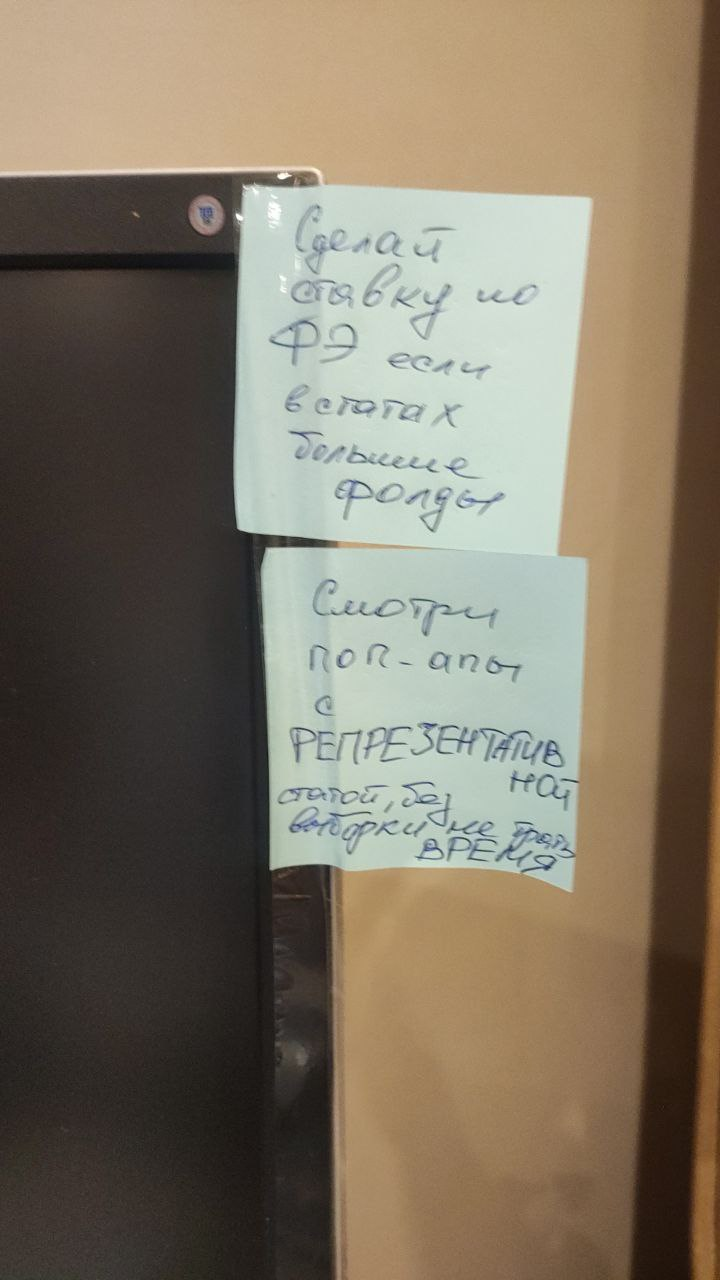 Сделай
ставку по
ФЭ если
в статах
большие
фолды
Смотри
поп-апы
с
РЕПРЕЗЕНТАТИВ
НОЙ
статой, без
выборки не трать
ВРЕМЯ